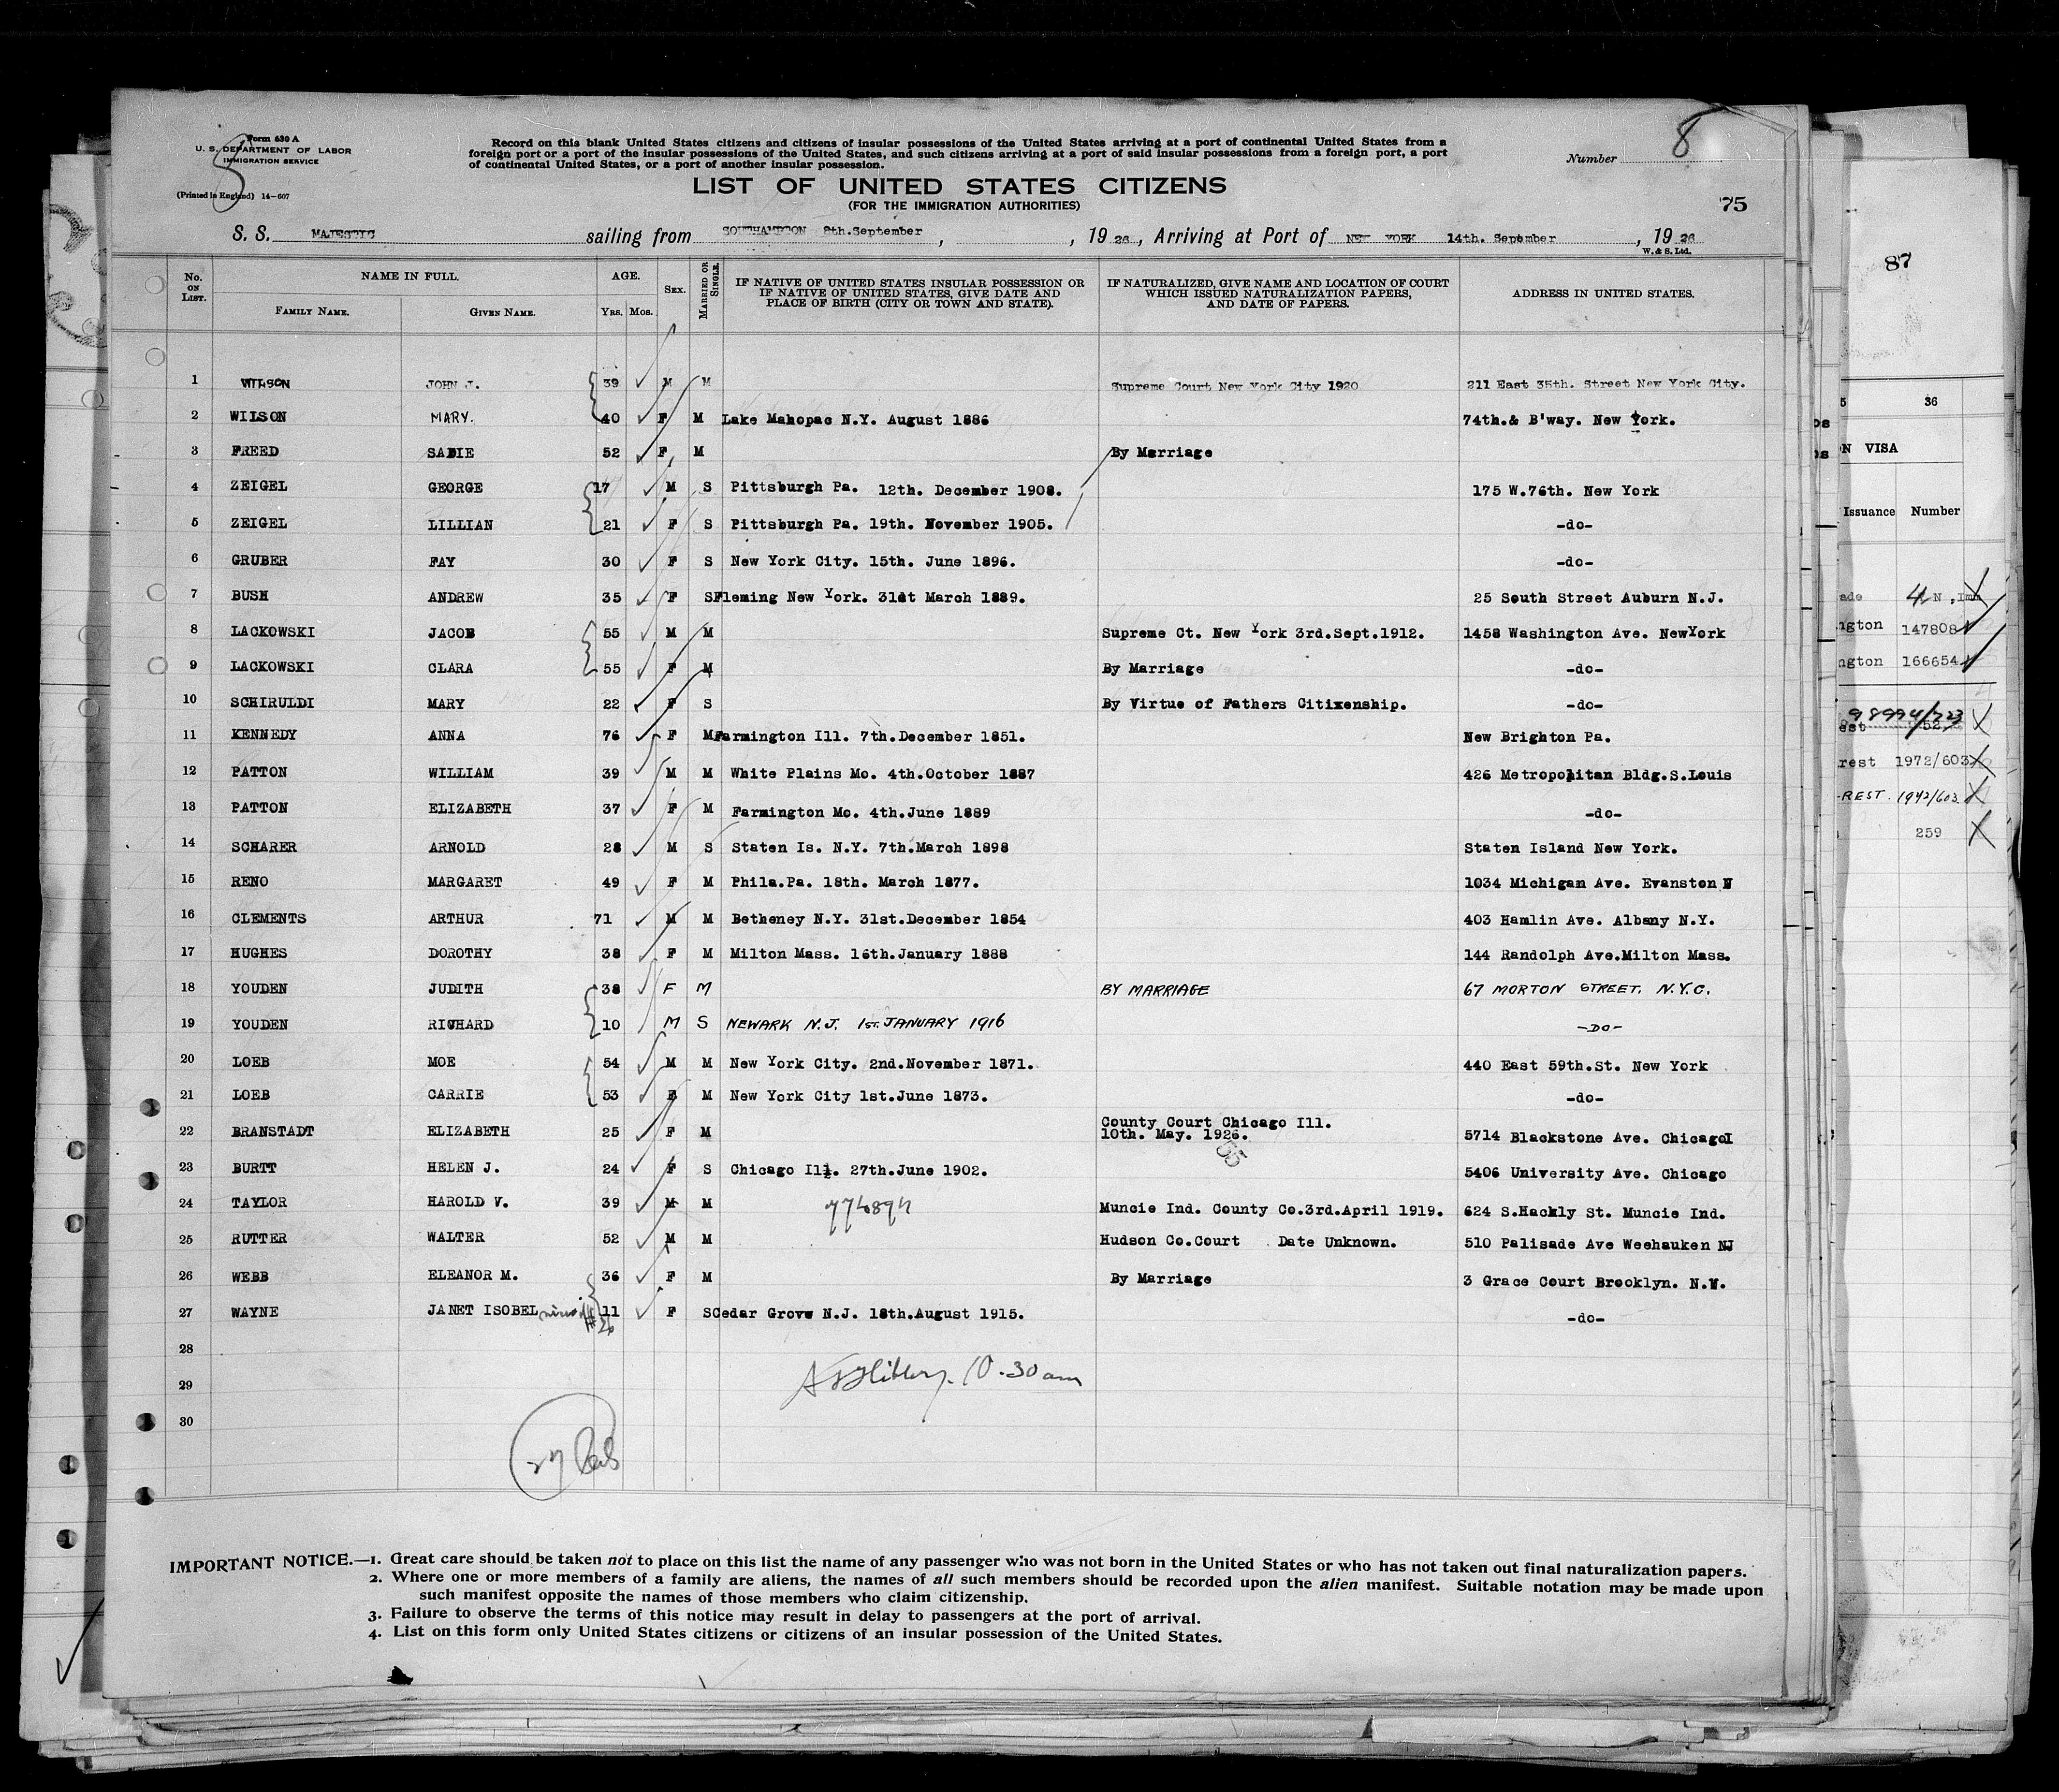 Form 630 A
U. S. DEPARTMENT OF LABOR
IMMIGRATION SERVICE
(Printed in England) 14-607
Record on this blank United States citizens and citizens of insular possessions of the United States arriving at a port of continental United States from a
foreign port or a port of the insular possessions of the United States, and such citizens arriving at a port of said insular possessions from a foreign port, a port
of continental United States, or a port of another insular possession.
Number 8
LIST OF UNITED STATES CITIZENS
(FOR THE IMMIGRATION AUTHORITIES)
75
S. S. MAJESTIC sailing from SOUTHAMPTON 8th.September, , 1926, Arriving at Port of NEW YORK 14th. September, 1926
W. & S. Ltd.
No. ON LIST. NAME IN FULL. AGE. SEX. MARRIED OR SINGLE. IF NATIVE OF UNITED STATES INSULAR POSSESSION OR IF NATIVE OF UNITED STATES, GIVE DATE AND PLACE OF BIRTH (CITY OR TOWN AND STATE). IF NATURALIZED, GIVE NAME AND LOCATION OF COURT WHICH ISSUED NATURALIZATION PAPERS, AND DATE OF PAPERS. ADDRESS IN UNITED STATES.
FAMILY NAME. GIVEN NAME. YRS. MOS.
1 WILSON JOHN J. 39 M M Supreme Court New York City 1920 211 East 35th. Street New York City.
2 WILSON MARY. 40 F M Lake Mahopac N.Y. August 1886 74th.& B'way. New York.
3 FREED SADIE 52 F M By Marriage
4 ZEIGEL GEORGE 17 M S Pittsburgh Pa. 12th. December 1908. 175 W.76th. New York
5 ZEIGEL LILLIAN 21 F S Pittsburgh Pa. 19th. November 1905. -do-
6 GRUBER FAY 30 F S New York City. 15th. June 1896. -do-
7 BUSH ANDREW 35 F S Fleming New York. 31st March 1889. 25 South Street Auburn N.J.
8 LACKOWSKI JACOB 55 M M Supreme Ct. New York 3rd.Sept.1912. 1458 Washington Ave. NewYork
9 LACKOWSKI CLARA 55 F M By Marriage -do-
10 SCHIRULDI MARY 22 F S By Virtue of Fathers Citixenship. -do-
11 KENNEDY ANNA 76 F M Farmington Ill. 7th.December 1851. New Brighton Pa.
12 PATTON WILLIAM 39 M M White Plains Mo. 4th.October 1887 426 Metropolitan Bldg.S.Louis
13 PATTON ELIZABETH 37 F M Farmington Mo. 4th.June 1889 -do-
14 SCHARER ARNOLD 28 M S Staten Is. N.Y. 7th.March 1898 Staten Island New York.
15 RENO MARGARET 49 F M Phila.Pa. 18th. March 1877. 1034 Michigan Ave. Evanston
16 CLEMENTS ARTHUR 71 M M Betheney N.Y. 31st.December 1854 403 Hamlin Ave. Albany N.Y.
17 HUGHES DOROTHY 38 F M Milton Mass. 16th.January 1888 144 Randolph Ave.Milton Mass.
18 YOUDEN JUDITH 38 F M BY MARRIAGE 67 MORTON STREET. N.Y.C.
19 YOUDEN RICHARD 10 M S NEWARK N.J. 1ST. JANUARY 1916 -DO-
20 LOEB MOE 54 M M New York City. 2nd.November 1871. 440 East 59th.St. New York
21 LOEB CARRIE 53 F M New York City 1st.June 1873. -do-
22 BRANSTADT ELIZABETH 25 F M County Court Chicago Ill. 10th. May. 1926. 5714 Blackstone Ave. ChicagoI
23 BURTT HELEN J. 24 F S Chicago Ill. 27th.June 1902. 5406 University Ave. Chicago
24 TAYLOR HAROLD V. 39 M M Muncie Ind. County Co.3rd.April 1919. 624 S.Hackly St. Muncie Ind.
25 RUTTER WALTER 52 M M Hudson Co.Court Date Unknown. 510 Palisade Ave Weehauken NJ
26 WEBB ELEANOR M. 36 F M By Marriage 3 Grace Court Brooklyn. N.Y.
27 WAYNE JANET ISOBEL 11 F S Cedar Grove N.J. 18th.August 1915. -do-
28
29 10.30 am
30
IMPORTANT NOTICE.—1. Great care should be taken not to place on this list the name of any passenger who was not born in the United States or who has not taken out final naturalization papers.
2. Where one or more members of a family are aliens, the names of all such members should be recorded upon the alien manifest. Suitable notation may be made upon
such manifest opposite the names of those members who claim citizenship.
3. Failure to observe the terms of this notice may result in delay to passengers at the port of arrival.
4. List on this form only United States citizens or citizens of an insular possession of the United States.
87
36
N VISA
Issuance Number
ngton 147808
ngton 166654
rest 1972/603
-REST. 1942/603
259